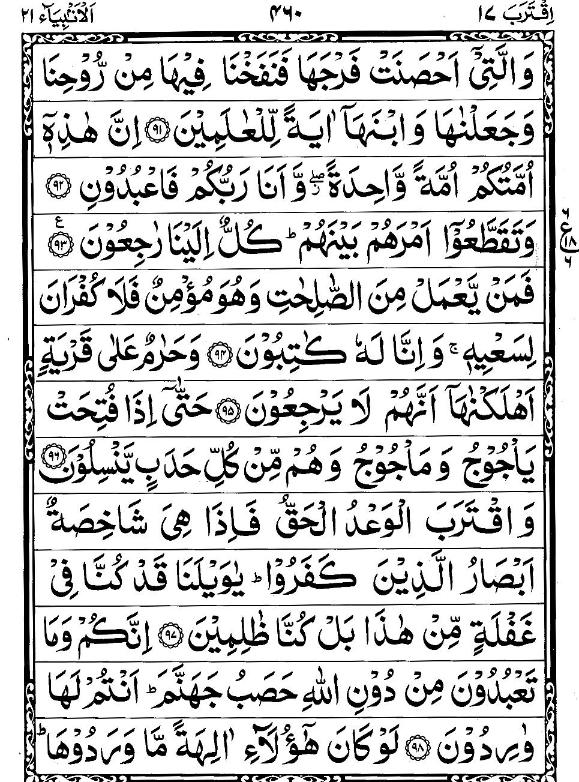 اقترب ١٧ ٤٦٠ الانبياء ٢١
وَالَّتِیْۤ اَحْصَنَتْ فَرْجَهَا فَنَفَخْنَا فِیْهَا مِنْ رُّوْحِنَا
وَجَعَلْنٰهَا وَابْنَهَاۤ اٰیَةً لِّلْعٰلَمِیْنَ ﴿۹۱﴾ اِنَّ هٰذِهٖۤ
اُمَّتُكُمْ اُمَّةً وَّاحِدَةً ۖ وَّاَنَا رَبُّكُمْ فَاعْبُدُوْنِ ﴿۹۲﴾
وَتَقَطَّعُوْۤا اَمْرَهُمْ بَیْنَهُمْ ؕ كُلٌّ اِلَیْنَا رٰجِعُوْنَ ﴿۹۳﴾ ع
٦ ع ١٨ ٦
فَمَنْ یَّعْمَلْ مِنَ الصّٰلِحٰتِ وَهُوَ مُؤْمِنٌ فَلَا كُفْرَانَ
لِسَعْیِهٖ ۚ وَاِنَّا لَهٗ كٰتِبُوْنَ ﴿۹۴﴾ وَحَرٰمٌ عَلٰی قَرْیَةٍ
اَهْلَكْنٰهَاۤ اَنَّهُمْ لَا یَرْجِعُوْنَ ﴿۹۵﴾ حَتّٰۤی اِذَا فُتِحَتْ
یَاْجُوْجُ وَمَاْجُوْجُ وَهُمْ مِّنْ كُلِّ حَدَبٍ یَّنْسِلُوْنَ ﴿۹۶﴾
وَاقْتَرَبَ الْوَعْدُ الْحَقُّ فَاِذَا هِیَ شَاخِصَةٌ
اَبْصَارُ الَّذِیْنَ كَفَرُوْا ؕ یٰوَیْلَنَا قَدْ كُنَّا فِیْ
غَفْلَةٍ مِّنْ هٰذَا بَلْ كُنَّا ظٰلِمِیْنَ ﴿۹۷﴾ اِنَّكُمْ وَمَا
تَعْبُدُوْنَ مِنْ دُوْنِ اللّٰهِ حَصَبُ جَهَنَّمَ ؕ اَنْتُمْ لَهَا
وٰرِدُوْنَ ﴿۹۸﴾ لَوْ كَانَ هٰۤؤُلَآءِ اٰلِهَةً مَّا وَرَدُوْهَا ؕ